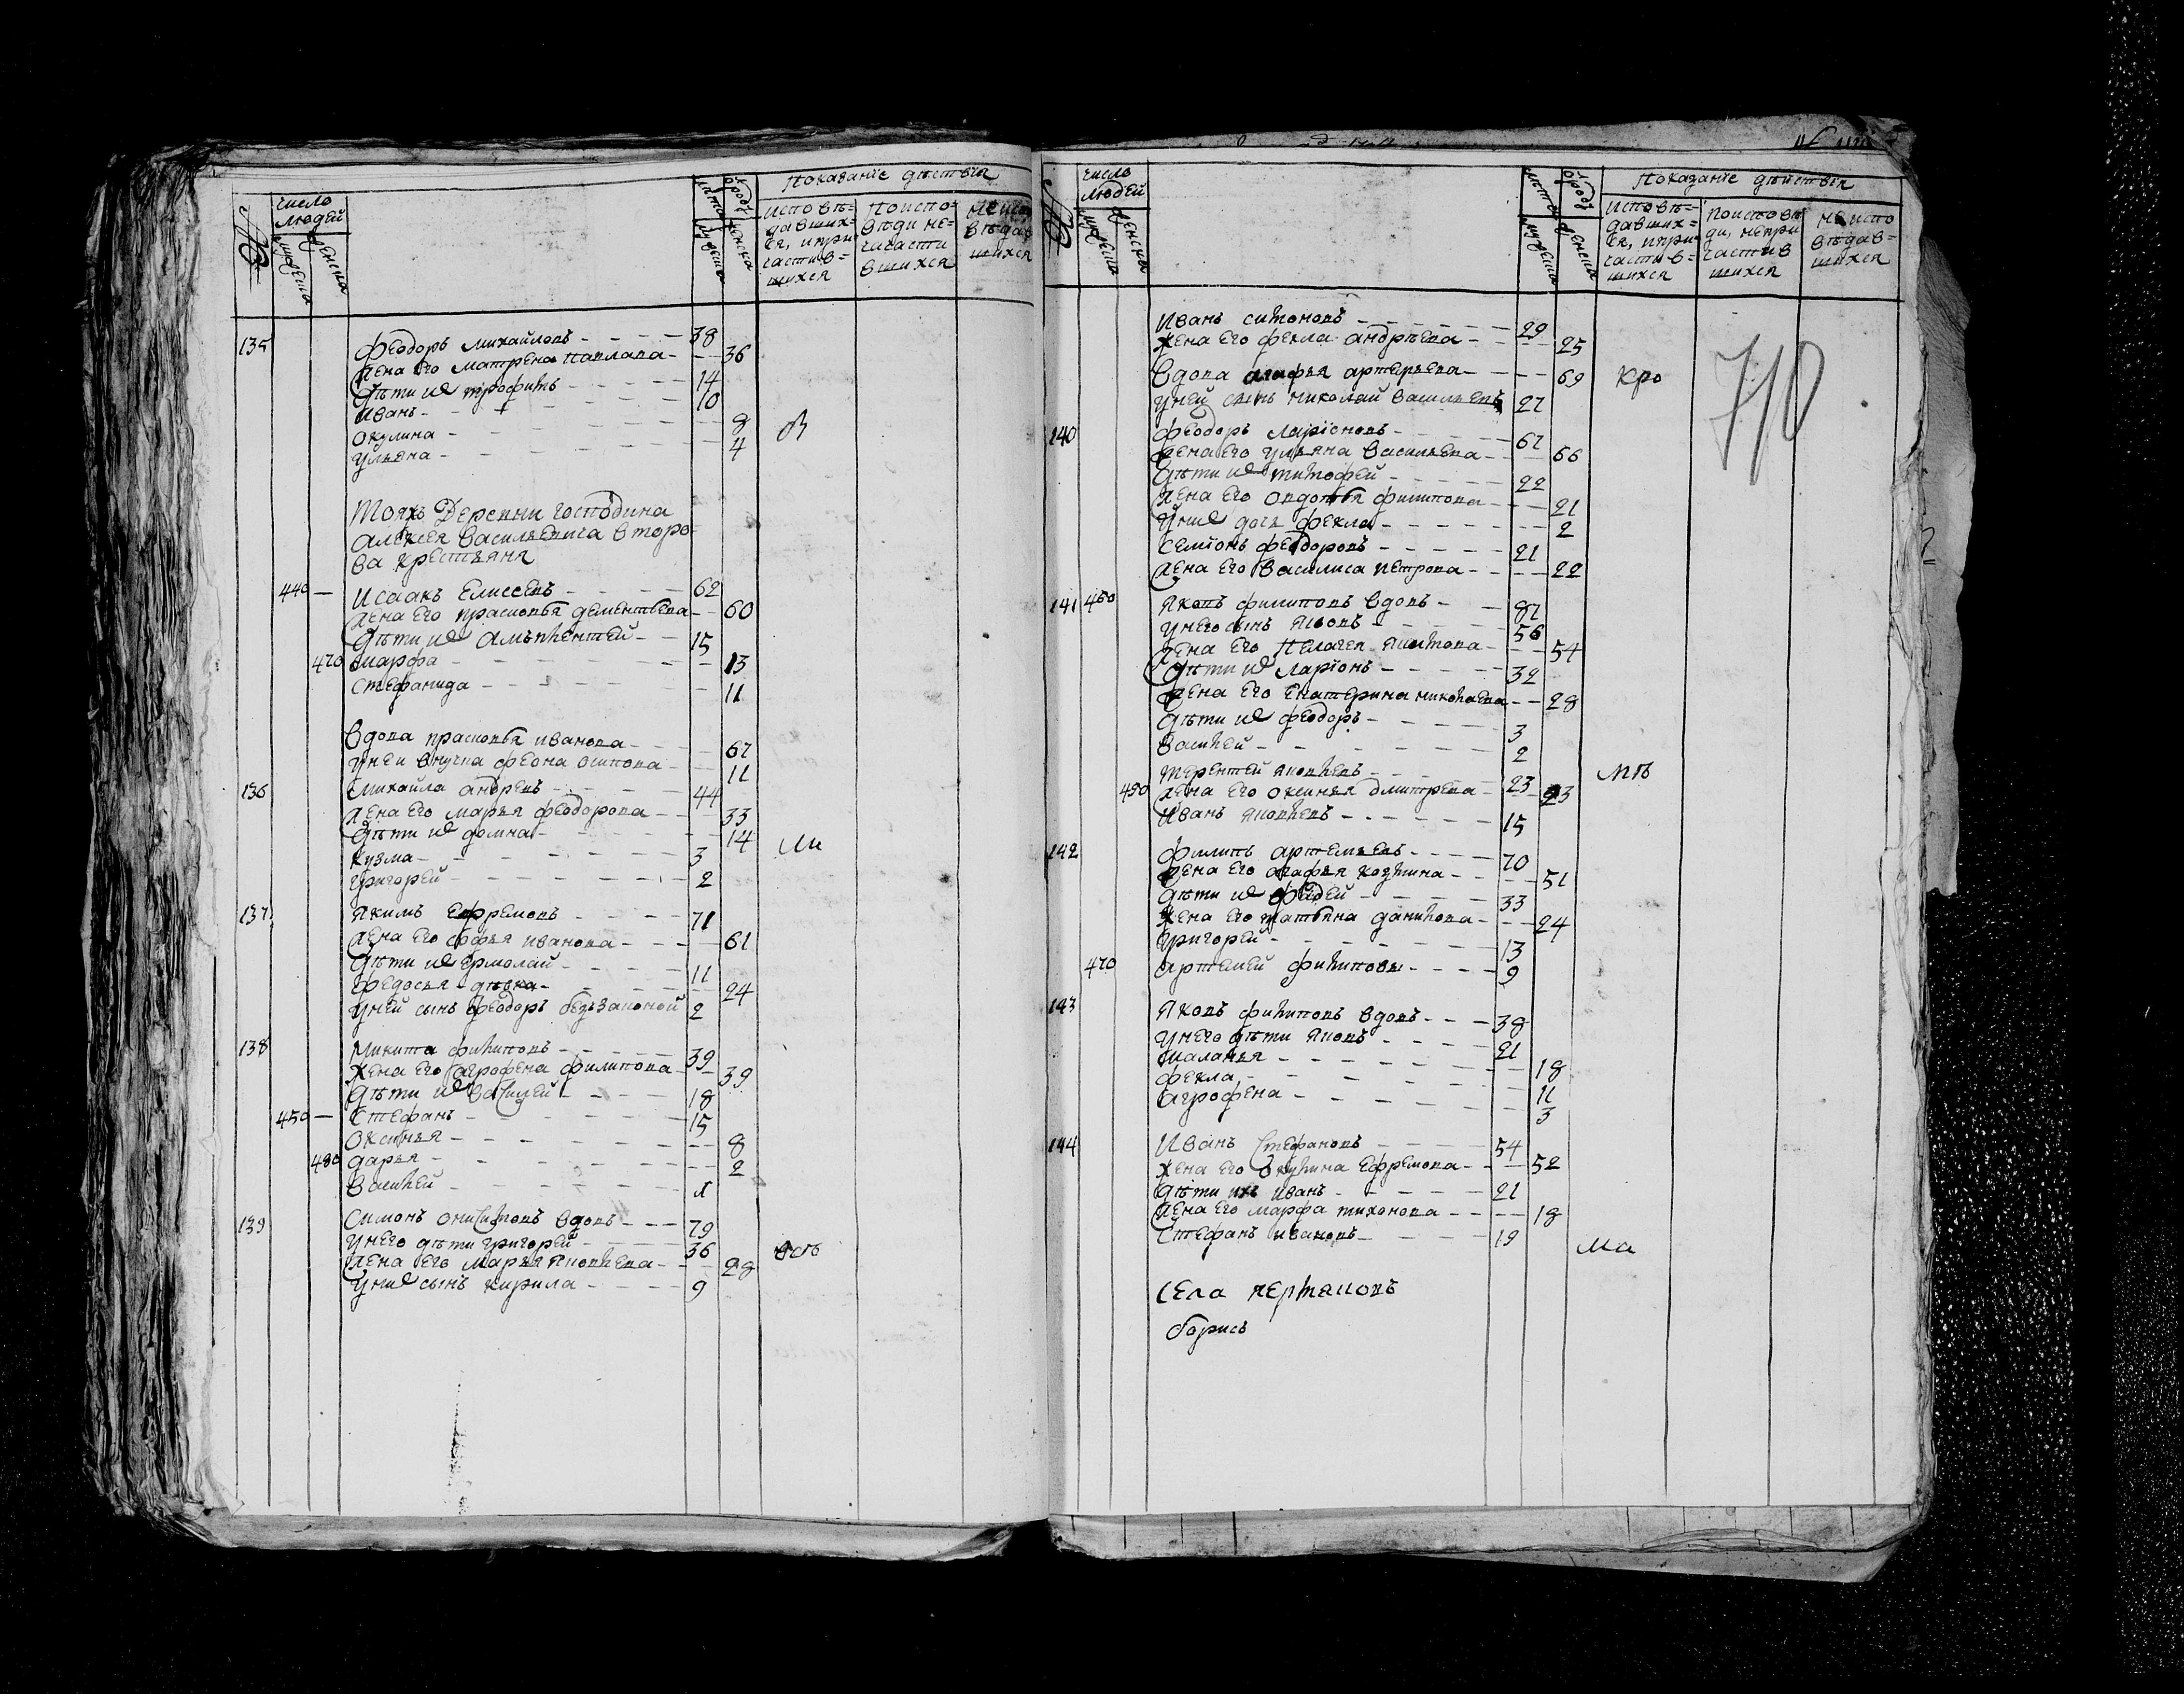 число людей
мужеска
женска
лѣта
отъ роду
мужеска
женска
Показанїе дѣйствїя
исповѣ=
давших=
ся, и при
частив=
шихся
По испо=
вѣди не=
причасти
вшихся
не испо
вѣдав
шихся
135 Феодоръ Михайловъ - - - - 38
жена его матрена павлова - - - 36
дѣти их трофимъ - - - - 14
Иванъ - - - - 10
окулина - - - - 8
ульяна - - - - 4
Тояжъ Деревни господина
алексея васильевича второ
ва крестьяня
440 — Исаакъ Елисеевъ - - - - 62
жена его прасковья дементьева - - 60
дѣти их 15
470 марфа - - - - 13
стефанида - - - - 11
вдова прасковья иванова - - - 67
у неи внучка осипова - - 11
136 михайла андревъ - - - - 44
жена его марья феодорова - - - 33
дѣти их домна - - - - 14 ми
кузма - - - - 3
григорей - - - - 2
137 якимъ Ефремовъ - - - - 71
жена его софья иванова - - - 61
дѣти их ермолай - - - - 11
федосья дѣвка - - - - 24
у ней сынъ феодоръ беззаконой 2
138 Микита филиповъ - - - - 39
жена его агрофена филипова - - 39
дѣти их василей - - - - 18
450 — Стефанъ - - - - 15
оксинья - - - - 8
480 дарья - - - - 2
василей - - - -
139 Симонъ вдовъ - - - 79
у него дѣти григорей - - - - 36
жена его марья яковлева - - - 28
у них сынъ кирила - - - - 9
число людей
мужеска
женска
лѣта
отъ роду
мужеска
женска
Показанїе дѣйствїя
исповѣ=
давших=
ся, и при
частив=
шихся
по исповѣ
ди, непри
частив
шихся
не испо
вѣдав=
шихся
710
Иванъ симоновъ - - - - 29
жена его фекла андрѣева - - - 25
вдова агафья артемьева - - - 69 кро
у ней сынъ николай васильевъ 27
140 феодоръ ларїоновъ - - - - 67
жена его ульяна васильева - - - 66
дѣти их тимофей - - - - 22
жена его овдотья филипова - - - 21
у них дочь фекла - - - - 2
семїонъ феодоровъ - - - - 21
жена его василиса петрова - - - 22
141 460 яковъ филиповъ вдовъ - - 87
у него сынъ яковъ - - - - 56
жена его пелагея - - - 54
дѣти их ларїонъ - - - - 32
жена его екатерина николаева - - 28
дѣти их феодоръ - - - - 3
василей - - - - 2
терентей яковлевъ - - - - 23
490 жена его оксинья дмитрева - - - 23
иванъ яковлевъ - - - - 15
142 филипъ артемьевъ - - - - 70
жена его агафья козмина - - - 51
дѣти их фадей - - - - 33
жена его татьяна данилова - - - 24
григорей - - - - 13
470 артемей филиповы - - - - 9
143 яковъ филиповъ вдовъ - - - 38
у него дѣти яковъ - - - - 21
маланья - - - - 18
фекла - - - - 11
агрофена - - - - 3
144 Иванъ Стефановъ - - - - 54
жена его окулина ефремова - - - 52
дѣти ихъ иванъ - - - - 21
жена его марфа тихонова - - - 18
Стефанъ ивановъ - - - - 19
ма
села
борисъ